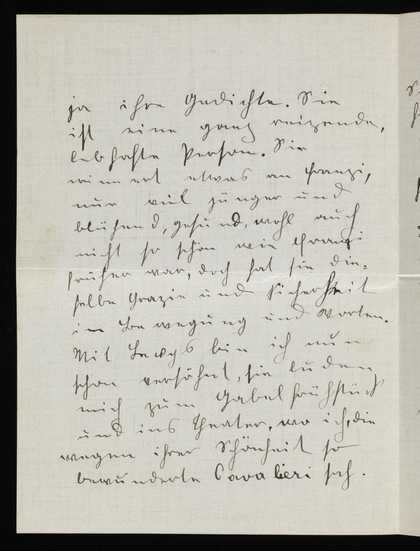 ja ihre Gedichte. Sie
ist eine ganz reizende,
lebhafte Person. Sie
erinnert etwas an Franzi,
nur viel jünger und
blühend, gesund, wohl auch
nicht so schön wie Franzi
früher war, doch hat sie die=
selbe Grazie und Sicherheit
in Bewegung und Worten.
Mit bin ich nun
schon versöhnt, sie luden
mich zum Gabelfrühstück
und ins Theater, wo ich, die
wegen ihrer Schönheit so
bewunderte Cavalieri sah.